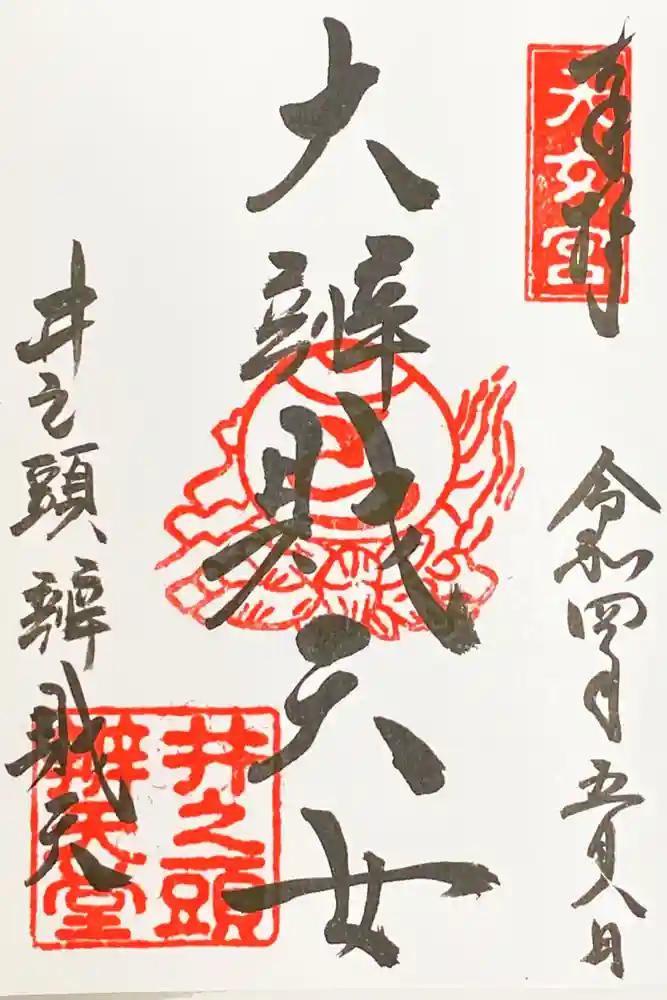 奉拝
令和四年五月八日
大辨財天女
井之頭辨財天
井之頭
辨天堂